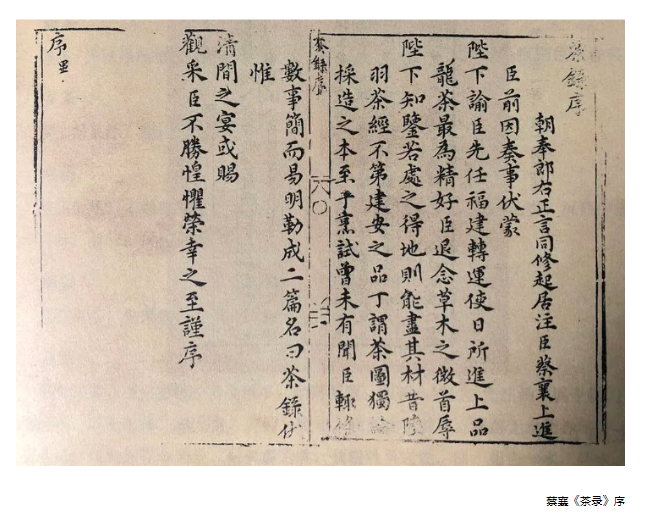 茶録序
朝奉郎右正言同修起居注臣蔡襄上進
臣前因奏事伏蒙
陛下諭臣先任福建轉運使日所進上品
龍茶最為精好臣退念草木之微首辱
陛下知鑒若處之得地則能盡其材昔陸
羽茶經不第建安之品丁謂茶圖獨論
採造之本至于烹試曾未有聞臣輒條
茶録序
數事簡而易明勒成二篇名曰茶録伏
惟
清閒之宴或賜
觀采臣不勝惶懼榮幸之至謹序
序畢
蔡襄《茶录》序